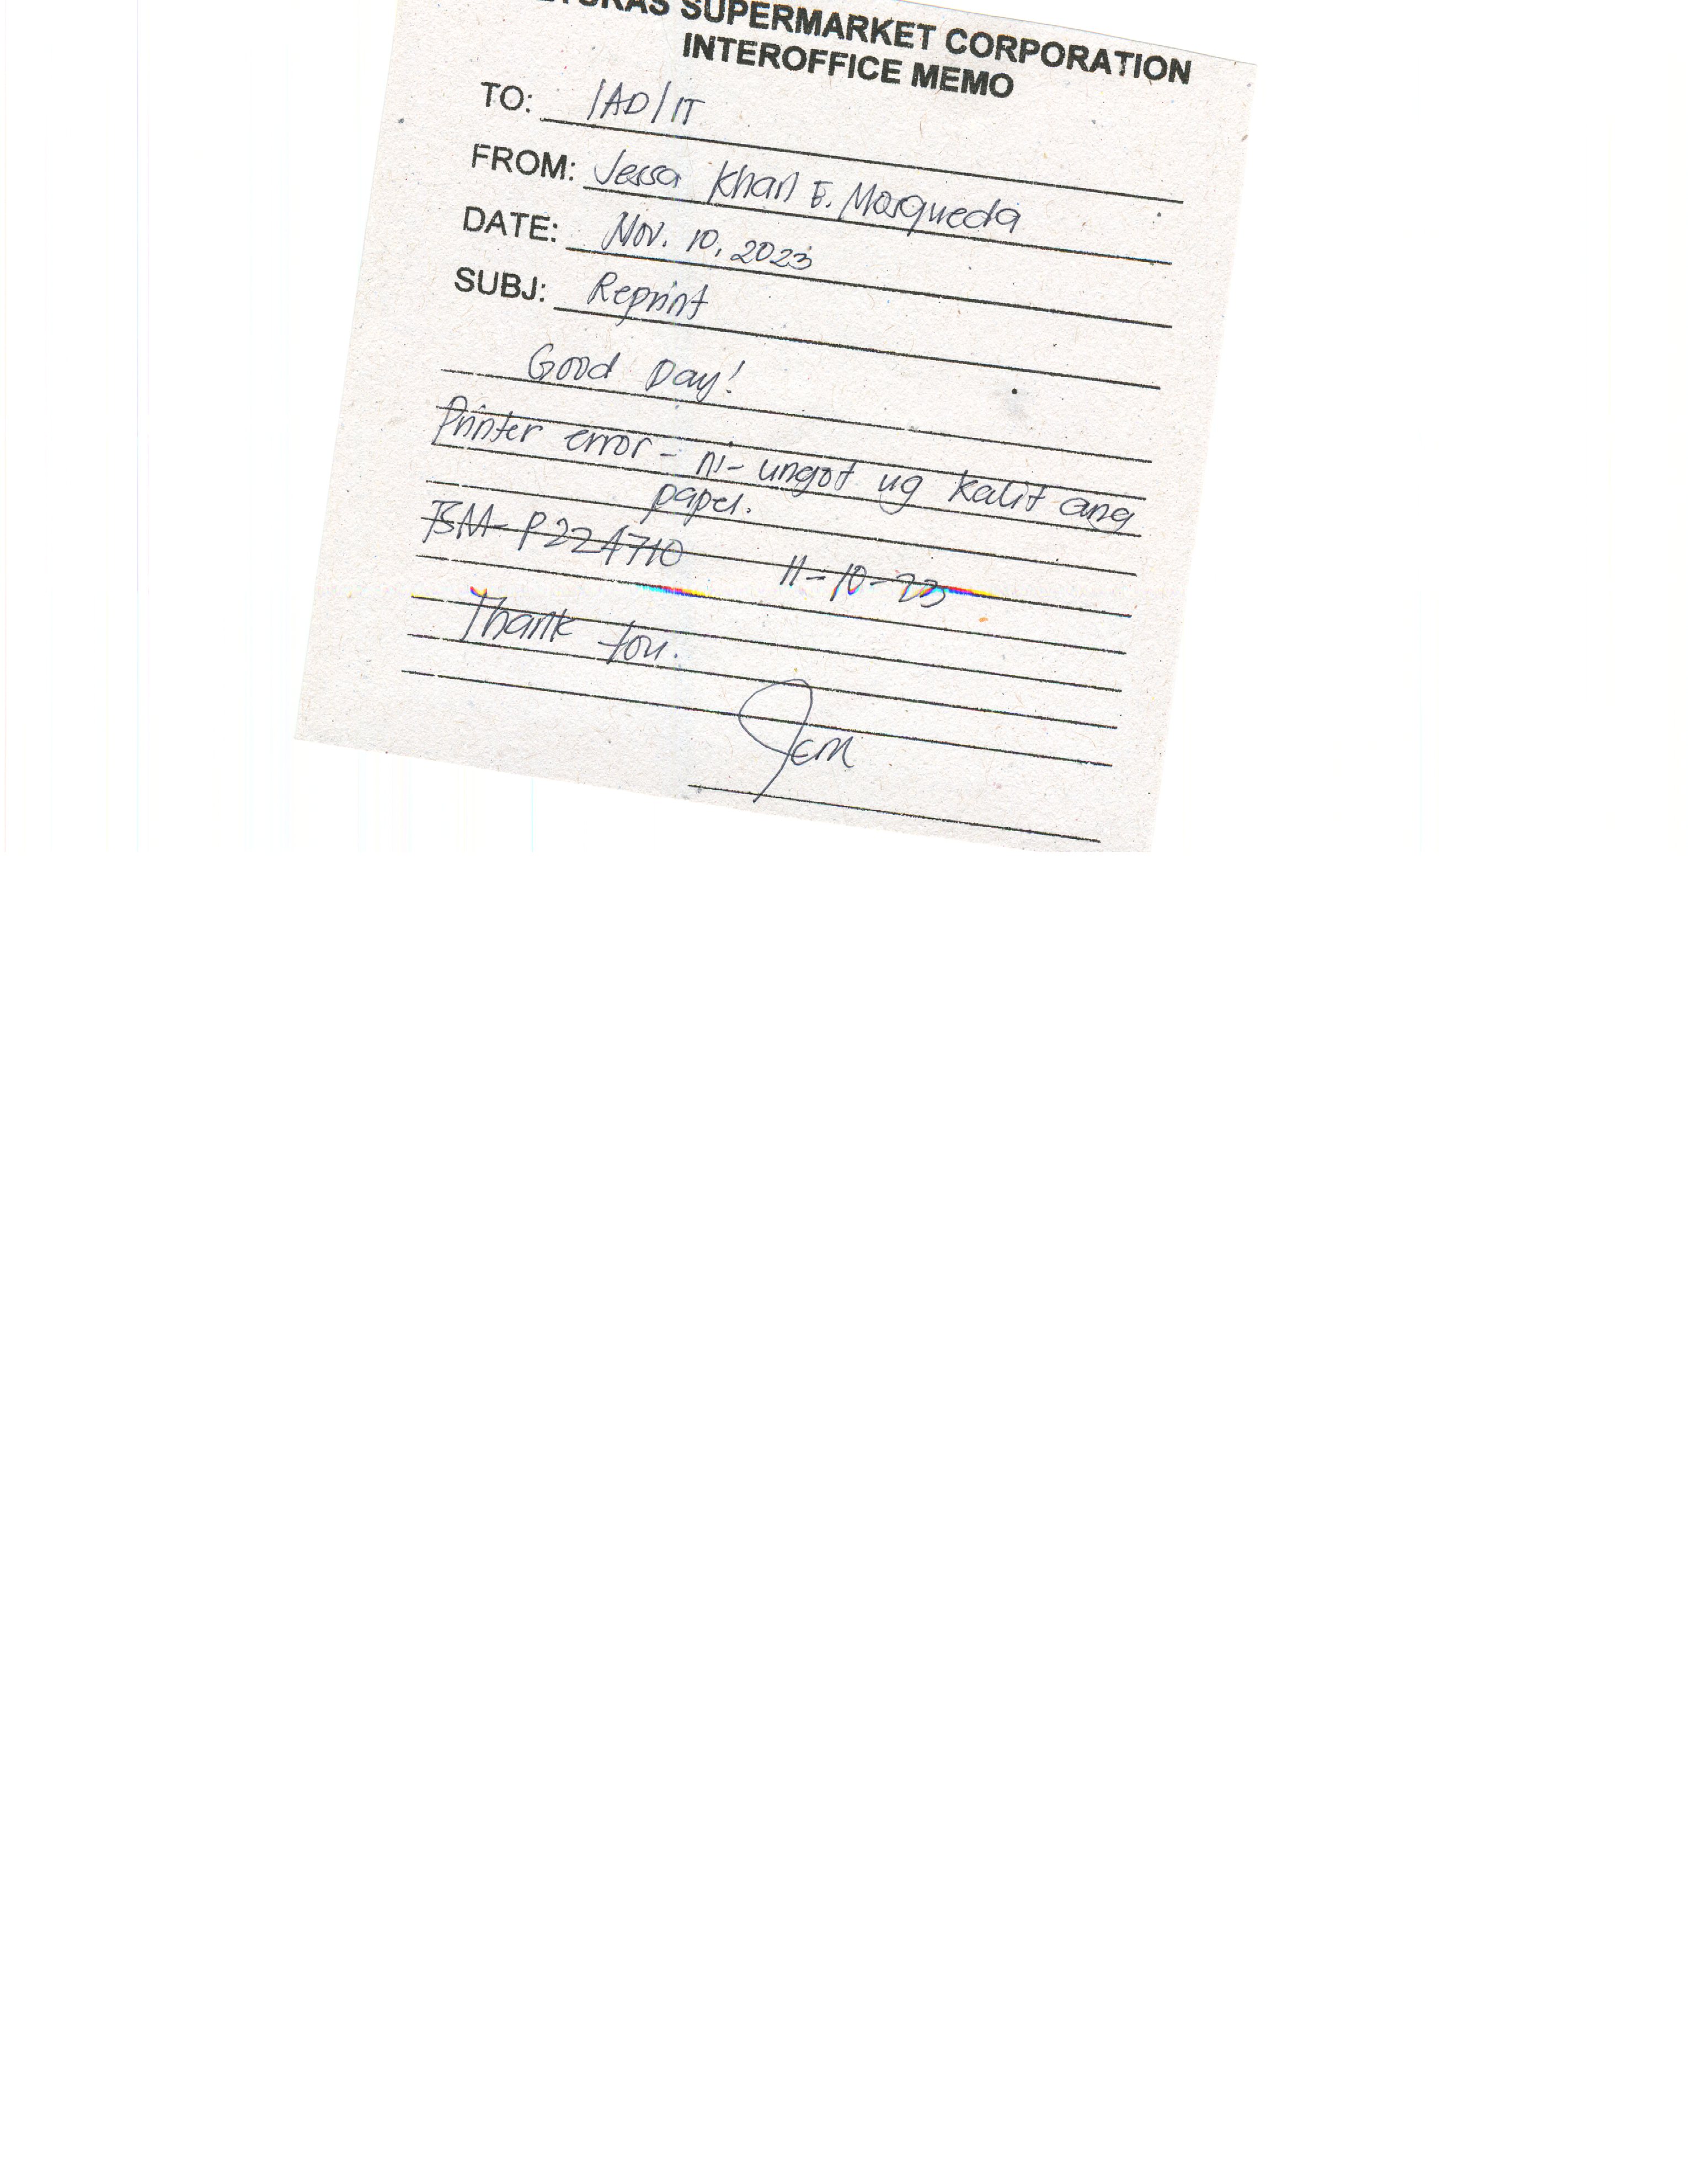 SUPERMARKET CORPORATION
INTEROFFICE MEMO
TO: IAD/IT
FROM: Jessa Khan E. Mosqueda
DATE: Nov. 10, 2023
SUBJ: Reprint
Good Day!
Printer error - ni-ungot ug kalit ang
papel.
11-10-23
Thank You.